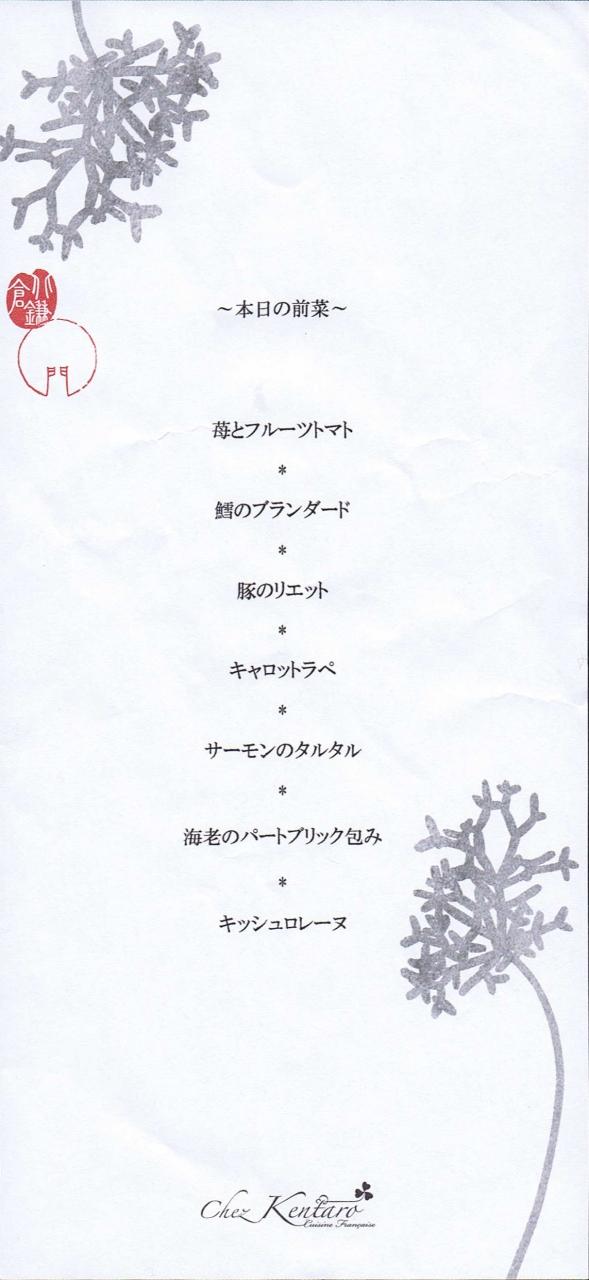 北鎌倉
門
～本日の前菜～
苺とフルーツトマト
*
鱈のブランダード
*
豚のリエット
*
キャロットラペ
*
サーモンのタルタル
*
海老のパートブリック包み
*
キッシュロレーヌ
Chez Kentaro
Cuisine Française